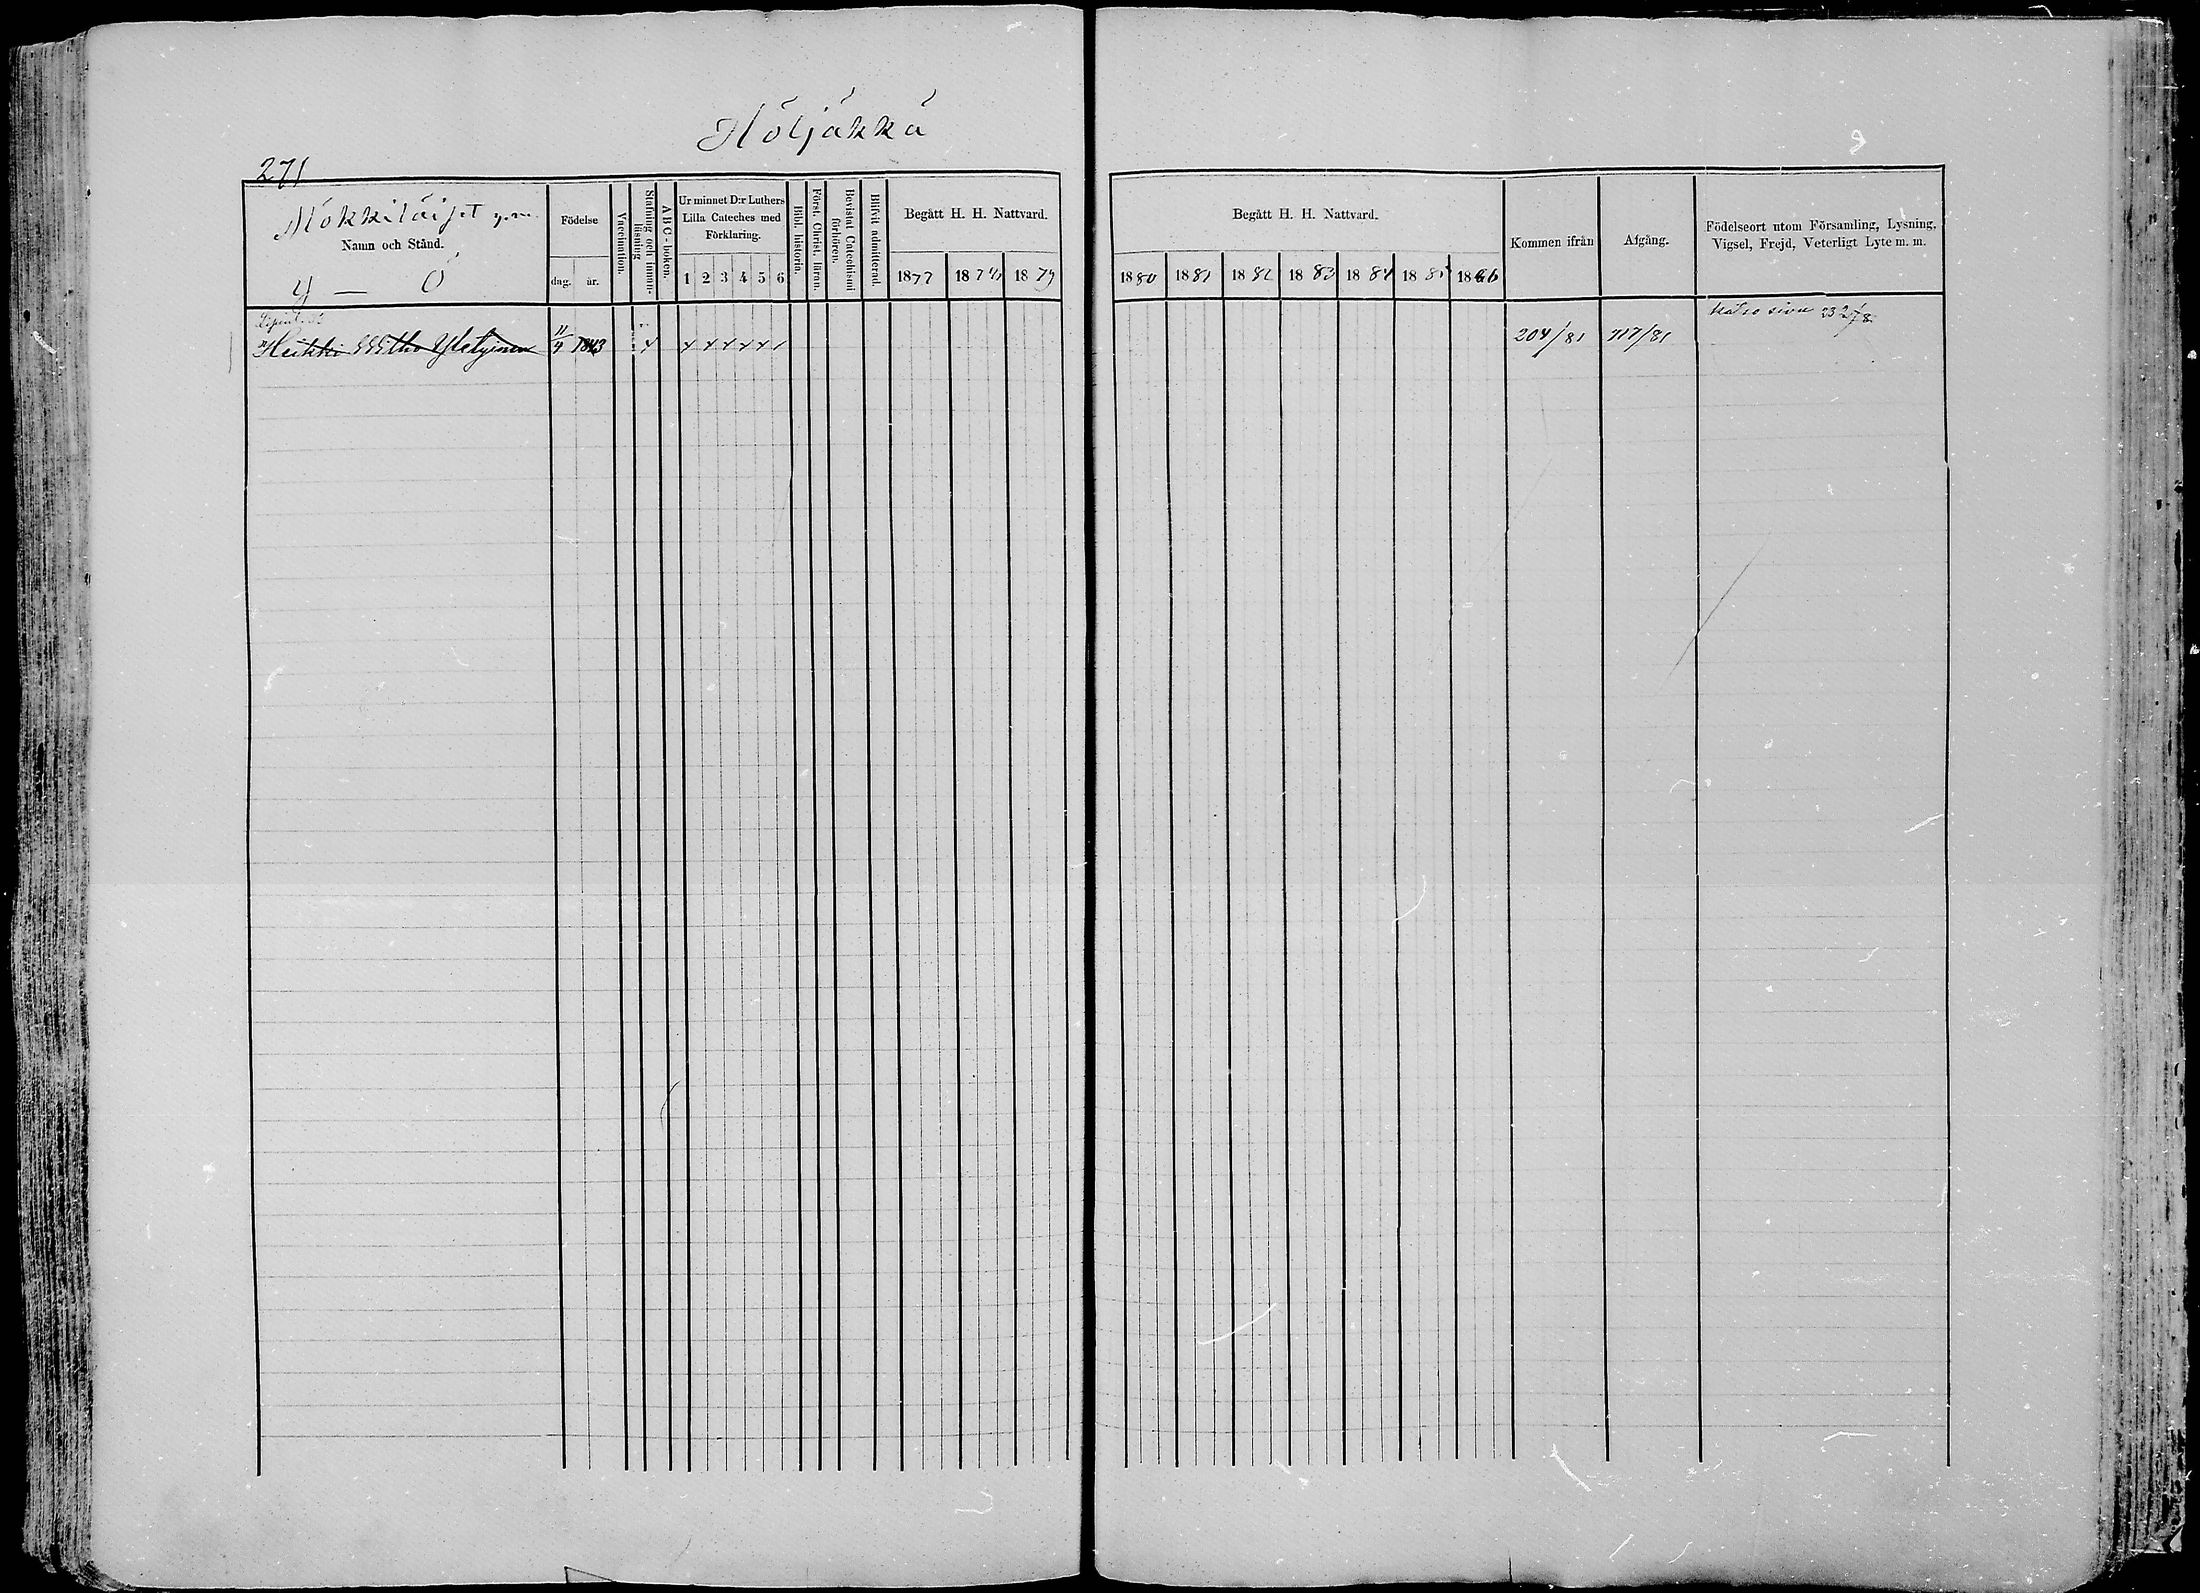 Höljäkkä
271
Mökkiläiset y.m.
Namn och Stånd.
Y — Ö
Födelse
dag. år.
Vaccination.
Stafning och innan-
läsning
ABC-boken.
Ur minnet D:r Luthers
Lilla Cateches med
Förklaring.
1 2 3 4 5 6
Bibl. historia.
Först. Christ. läran.
Bevistat Catechismi
förhören.
Blifvit admitterad.
Begått H. H. Nattvard.
1877 1878 1879
Begått H. H. Nattvard.
1880 1881 1882 1883 1884 1885 1886
Kommen ifrån
Afgång.
Födelseort utom Församling, Lysning,
Vigsel, Frejd, Veterligt Lyte m. m.
katso sivu
Heikki Yletyinen 11/4 1843
204/81 717/81